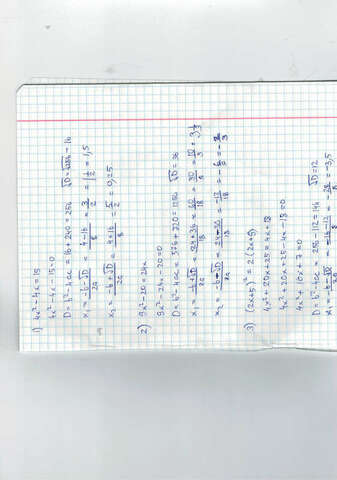 1) 4x²-4x=15
4x²-4x-15=0
D=b²-4ac=16+240=256 √D=√256=16
x₁=(-b-√D)/2a=(4-16)/8=3/2=1 1/2=1,5
x₂=(-b+√D)/2a=(4+16)/8=5/2=0,25
2) 9x²-20=24x
9x²-24x-20=0
D=b²-4ac=576+720=1296 √D=36
x₁=(-b+√D)/2a=(24+36)/18=60/18=30/9=10/3=3 1/3
x₂=(-b-√D)/2a=(24-36)/18=-12/18=-6/9=-2/3
3) (2x+5)²=2(2x+9)
4x²+20x+25=4x+18
4x²+20x+25-4x-18=0
4x²+16x+7=0
D=b²-4ac=256-112=144 √D=12
x₁=(-b-√D)/2a=(-16-12)/8=-28/8=-3,5